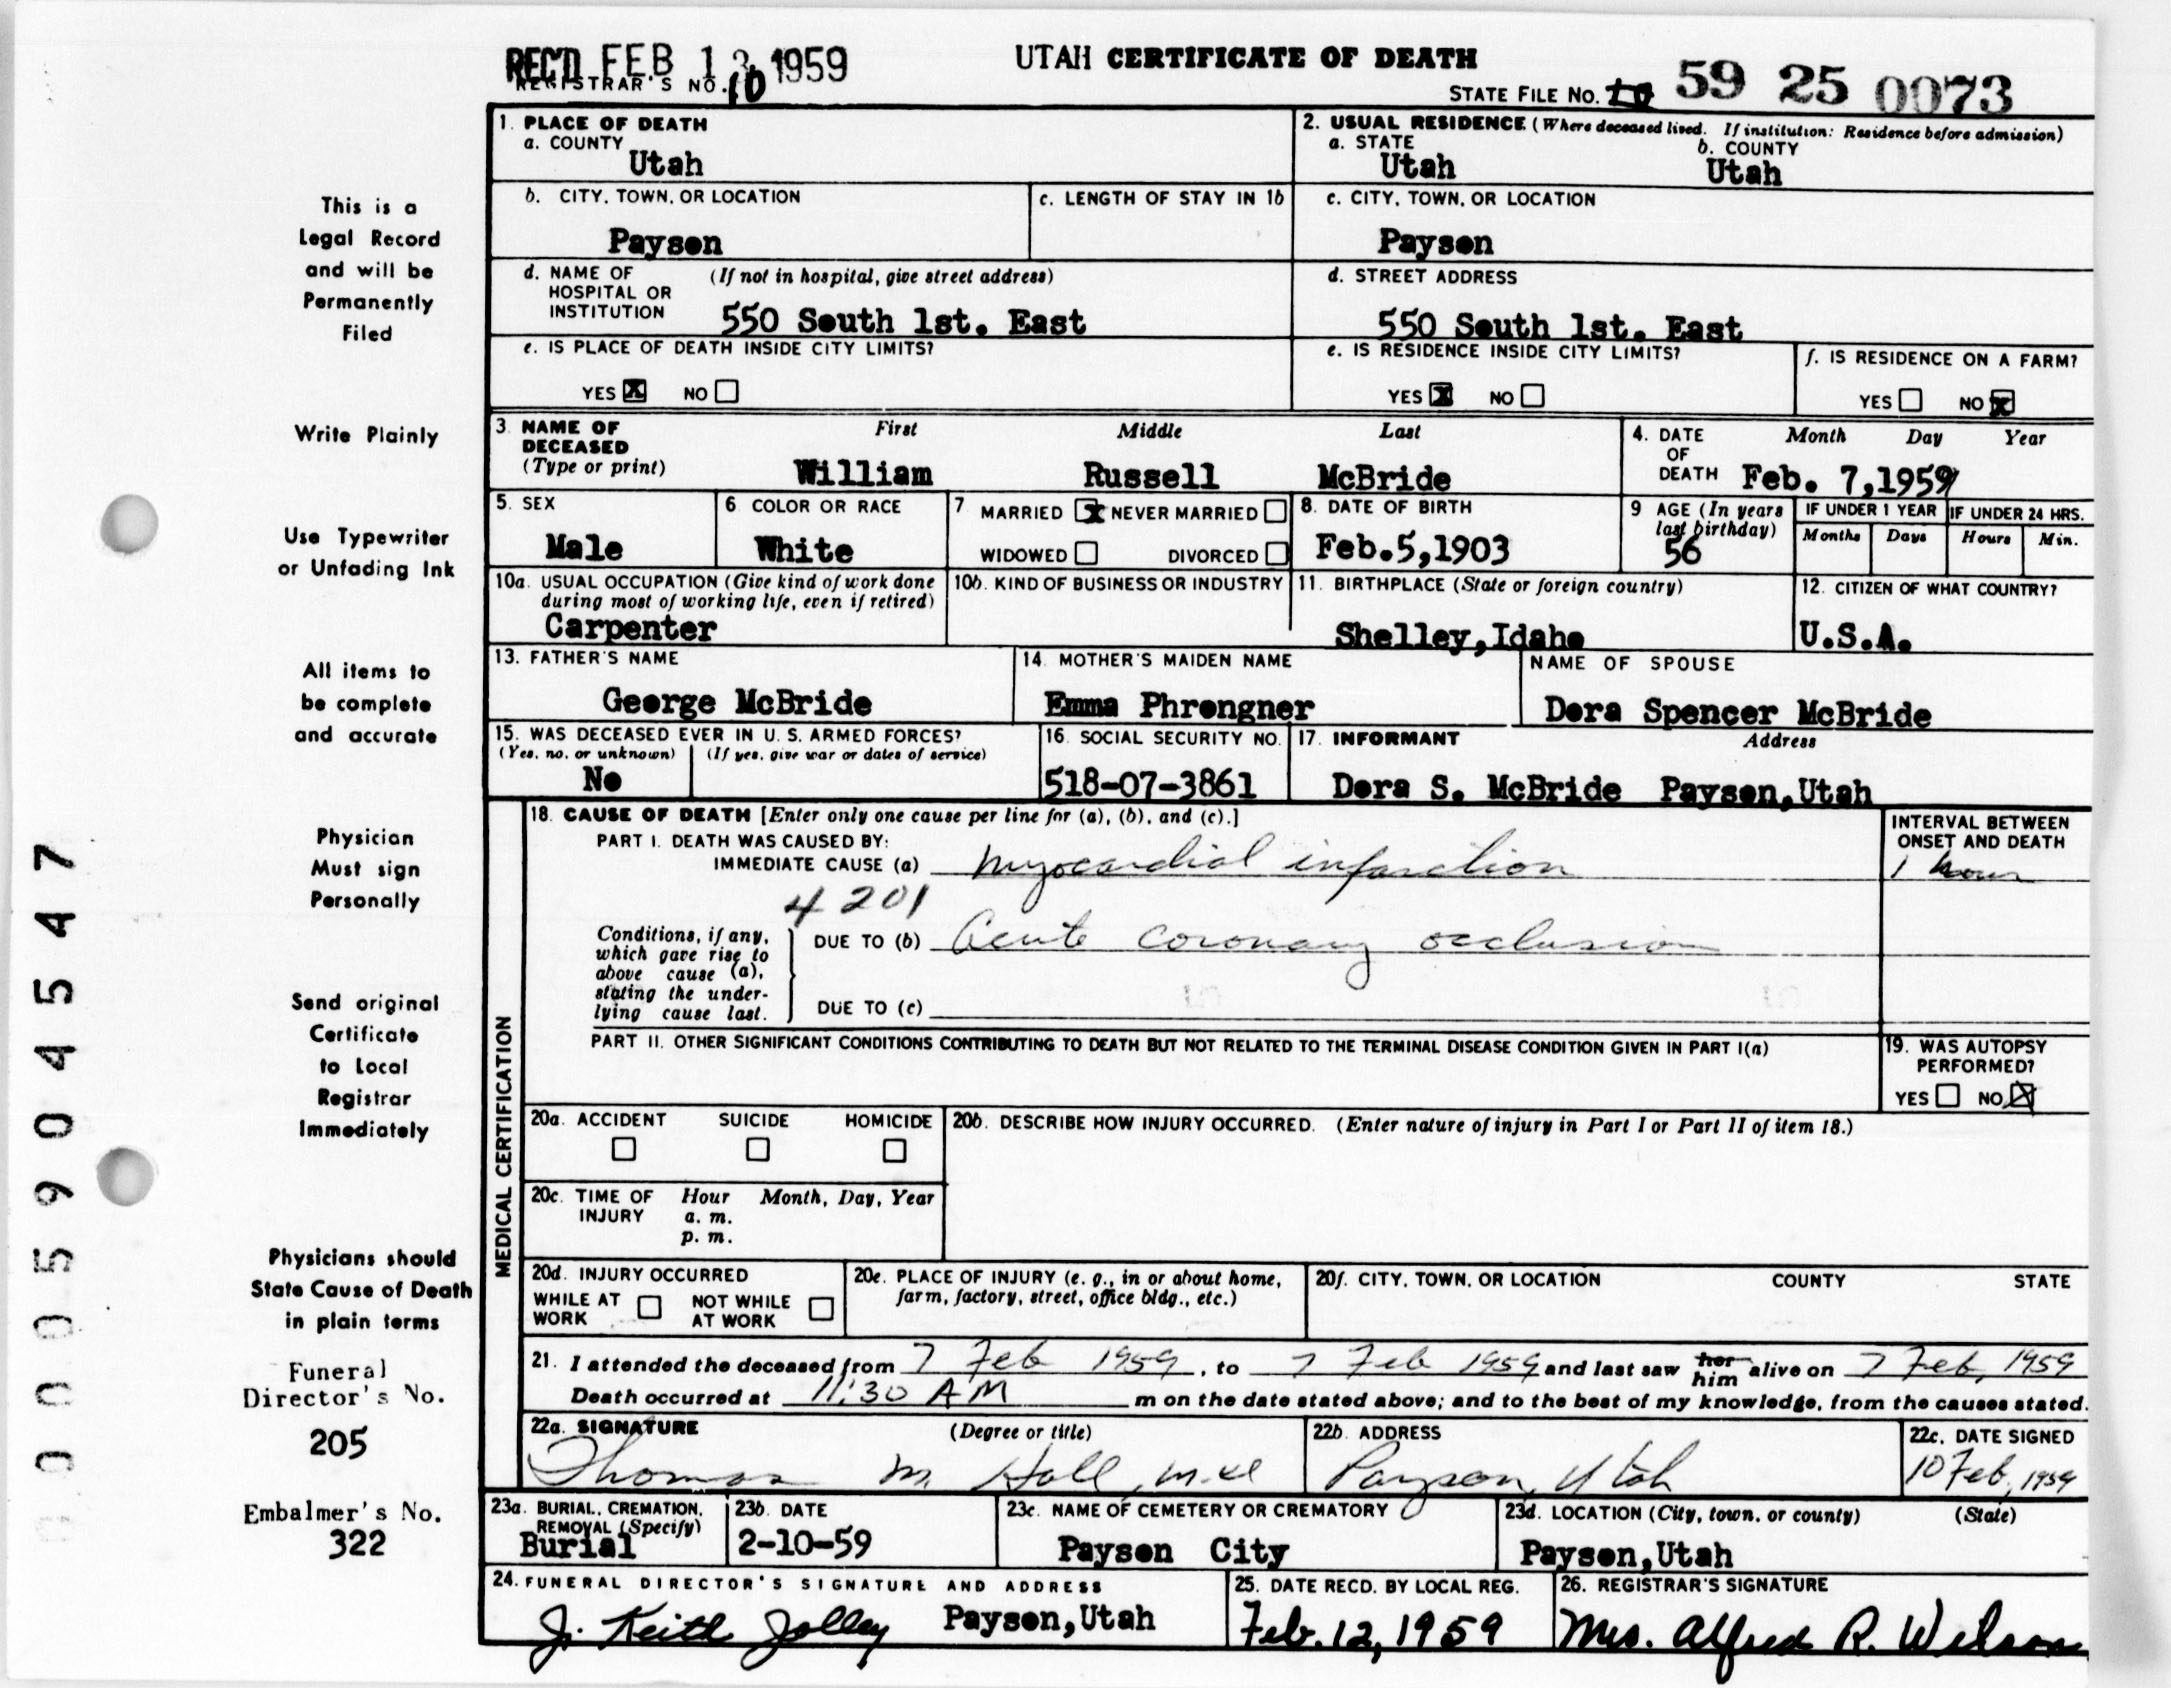 REC'D FEB 13 1959
UTAH CERTIFICATE OF DEATH
REGISTRAR'S NO. 10
STATE FILE NO. 59 25 0073
1. PLACE OF DEATH
a. COUNTY
Utah
2. USUAL RESIDENCE (Where deceased lived. If institution: Residence before admission)
a. STATE b. COUNTY
Utah Utah
b. CITY, TOWN, OR LOCATION
Payson
c. LENGTH OF STAY IN 1b
c. CITY, TOWN, OR LOCATION
Payson
d. NAME OF HOSPITAL OR INSTITUTION (If not in hospital, give street address)
550 South 1st. East
d. STREET ADDRESS
550 South 1st. East
e. IS PLACE OF DEATH INSIDE CITY LIMITS?
YES X NO
e. IS RESIDENCE INSIDE CITY LIMITS?
YES X NO
f. IS RESIDENCE ON A FARM?
YES NO X
3. NAME OF DECEASED (Type or print)
First Middle Last
William Russell McBride
4. DATE OF DEATH Month Day Year
Feb. 7,1959
5. SEX
Male
6 COLOR OR RACE
White
7 MARRIED X NEVER MARRIED
WIDOWED DIVORCED
8. DATE OF BIRTH
Feb.5,1903
9 AGE (In years last birthday)
56
IF UNDER 1 YEAR
Months Days
IF UNDER 24 HRS.
Hours Min.
10a. USUAL OCCUPATION (Give kind of work done during most of working life, even if retired)
Carpenter
10b. KIND OF BUSINESS OR INDUSTRY
11. BIRTHPLACE (State or foreign country)
Shelley,Idaho
12. CITIZEN OF WHAT COUNTRY?
U.S.A.
13. FATHER'S NAME
George McBride
14. MOTHER'S MAIDEN NAME
Emma Phrongner
NAME OF SPOUSE
Dora Spencer McBride
15. WAS DECEASED EVER IN U. S. ARMED FORCES?
(Yes, no, or unknown) (If yes, give war or dates of service)
No
16. SOCIAL SECURITY NO.
518-07-3861
17. INFORMANT Address
Dora S. McBride Payson,Utah
MEDICAL CERTIFICATION
18. CAUSE OF DEATH [Enter only one cause per line for (a), (b), and (c).]
PART I. DEATH WAS CAUSED BY:
IMMEDIATE CAUSE (a) myocardial infarction
INTERVAL BETWEEN ONSET AND DEATH
1 hour
4201
Conditions, if any, which gave rise to above cause (a), stating the underlying cause last.
DUE TO (b) Acute coronary occlusion
DUE TO (c)
PART II. OTHER SIGNIFICANT CONDITIONS CONTRIBUTING TO DEATH BUT NOT RELATED TO THE TERMINAL DISEASE CONDITION GIVEN IN PART I(a)
19. WAS AUTOPSY PERFORMED?
YES NO X
20a. ACCIDENT SUICIDE HOMICIDE
20b. DESCRIBE HOW INJURY OCCURRED. (Enter nature of injury in Part I or Part II of item 18.)
20c. TIME OF INJURY Hour Month, Day, Year
a. m.
p. m.
20d. INJURY OCCURRED
WHILE AT WORK NOT WHILE AT WORK
20e. PLACE OF INJURY (e. g., in or about home, farm, factory, street, office bldg., etc.)
20f. CITY, TOWN, OR LOCATION COUNTY STATE
21. I attended the deceased from 7 Feb 1959, to 7 Feb 1959 and last saw her him alive on 7 Feb, 1959
Death occurred at 11:30 AM m on the date stated above; and to the best of my knowledge, from the causes stated.
22a. SIGNATURE (Degree or title)
Thomas M. Hall, M.D.
22b. ADDRESS
Payson, Utah
22c. DATE SIGNED
10 Feb, 1959
23a. BURIAL, CREMATION, REMOVAL (Specify)
Burial
23b. DATE
2-10-59
23c. NAME OF CEMETERY OR CREMATORY
Payson City
23d. LOCATION (City, town, or county) (State)
Payson,Utah
24. FUNERAL DIRECTOR'S SIGNATURE AND ADDRESS
J. Keith Jolley Payson,Utah
25. DATE RECD. BY LOCAL REG.
Feb. 12, 1959
26. REGISTRAR'S SIGNATURE
Mrs. Alfred R. Wilson
This is a
Legal Record
and will be
Permanently
Filed
Write Plainly
Use Typewriter
or Unfading Ink
All items to
be complete
and accurate
Physician
Must sign
Personally
Send original
Certificate
to Local
Registrar
Immediately
Physicians should
State Cause of Death
in plain terms
Funeral
Director's No.
205
Embalmer's No.
322
0005904547